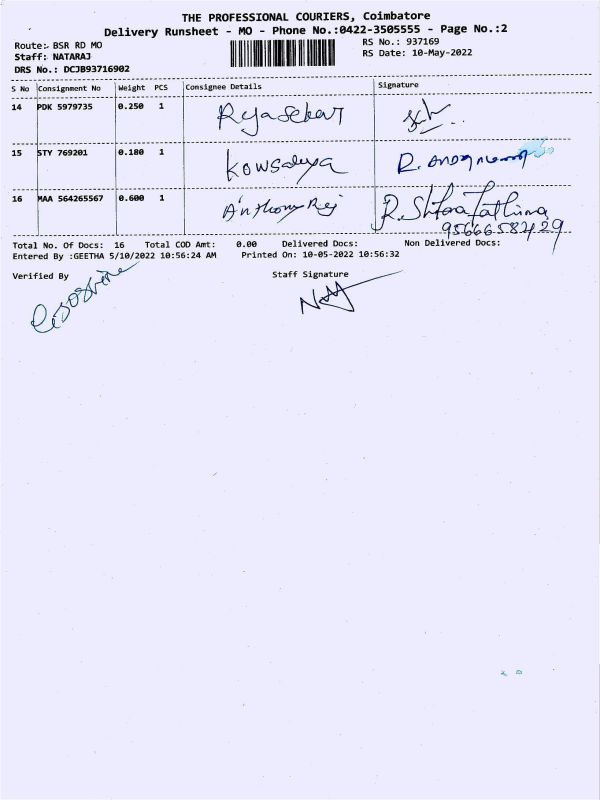 THE PROFESSIONAL COURIERS, Coimbatore
Delivery Runsheet - MO - Phone No.:0422-3505555 - Page No.:2
Route:- BSR RD MO
RS No.: 937169
Staff: NATARAJ
RS Date: 10-May-2022
DRS No.: DCJB93716902
S No Consignment No Weight PCS Consignee Details Signature
14 PDK 5979735 0.250 1 Rajasekar
15 STY 769201 0.180 1 Kowsalya
16 MAA 564265567 0.600 1 Anthony Raj R. Shifara Fathima
9566658429
Total No. Of Docs: 16 Total COD Amt: 0.00 Delivered Docs: Non Delivered Docs:
Entered By :GEETHA 5/10/2022 10:56:24 AM Printed On: 10-05-2022 10:56:32
Verified By Staff Signature